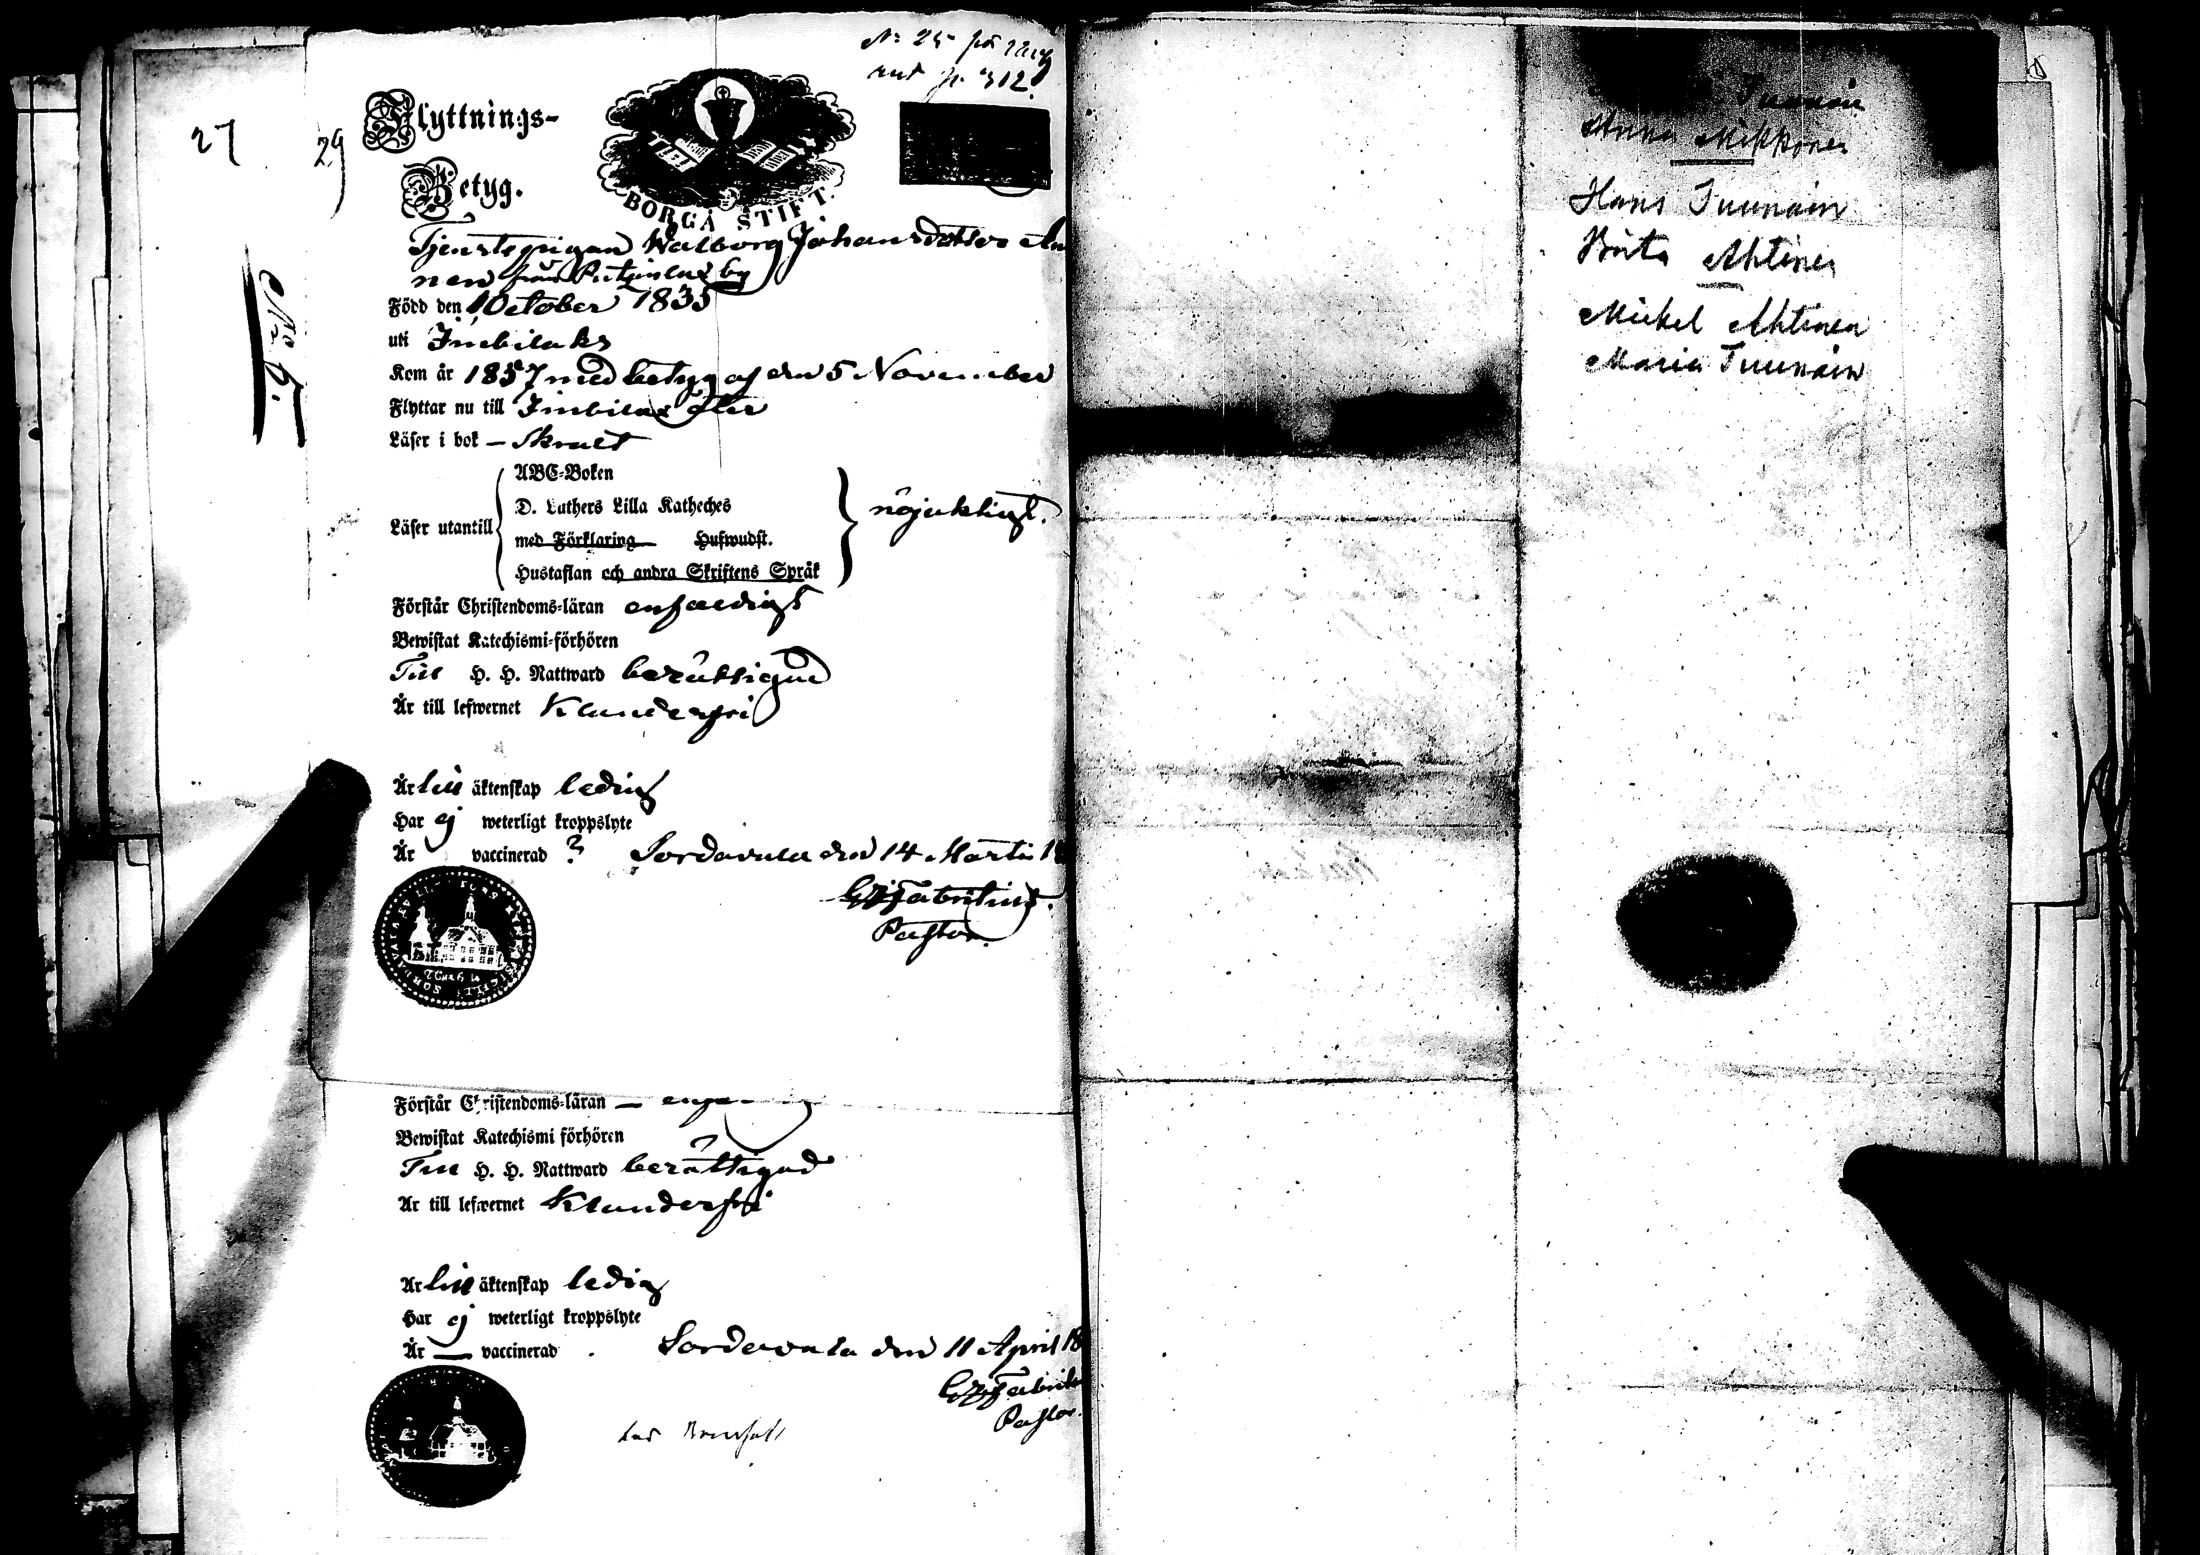 27
29
No 6.
No 25 på
312
Flyttnings-
Betyg.
BORGÅ STIFT.
Tjenstepigan Walborg Johansdotter An
nen från by
Född den 1 October 1835
uti Imbilaks
Kom år 1857 med betyg af den 5 November
Flyttar nu till Imbilax åter
Läser i bok – Skralt
Läser utantill
ABC-Boken
D. Luthers Lilla Katheches
med Förklaring Hufwudst.
Hustaflan och andra Skriftens Språk
nöjaktigt.
Förstår Christendoms-läran enfaldigt
Bewistat Katechismi-förhören
Till H. H. Nattward berättigad
Är till lefwernet Klanderfri
Är till äktenskap ledig
Har ej weterligt kroppslyte
Är vaccinerad ? Sordavala den 14 Martii 18
Fabritius.
Pastor.
Förstår Christendoms-läran —
Bewistat Katechismi förhören
Till H. H. Nattward berättigad
Är till lefwernet Klanderfri
Är till äktenskap ledig
Har ej weterligt kroppslyte
Är — vaccinerad . Sordavala den 11 April 18
Fabriti
Pastor.
Anna Mikkonen
Hans Tuunain
Brita Ahtinen
Mickel Ahtinen
Maria Tuunain